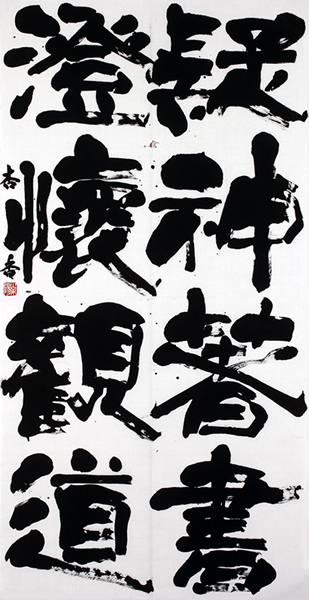 疑神著書
澄懐観道
杏